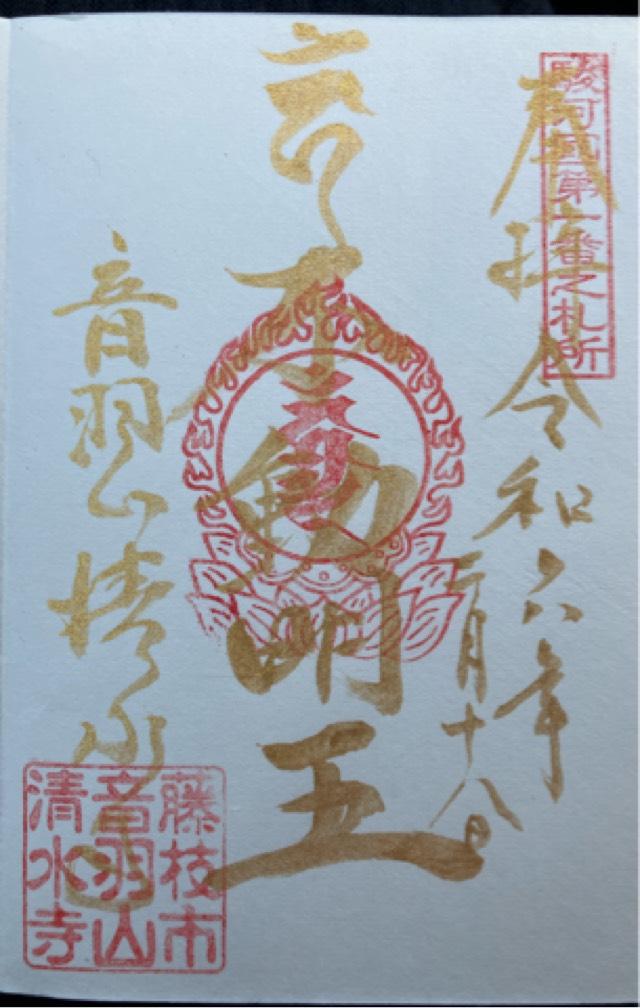 駿河國第一番之札所
奉拝 令和六年
二月十八日
不動明王
音羽山清水寺
藤枝市
音羽山
清水寺